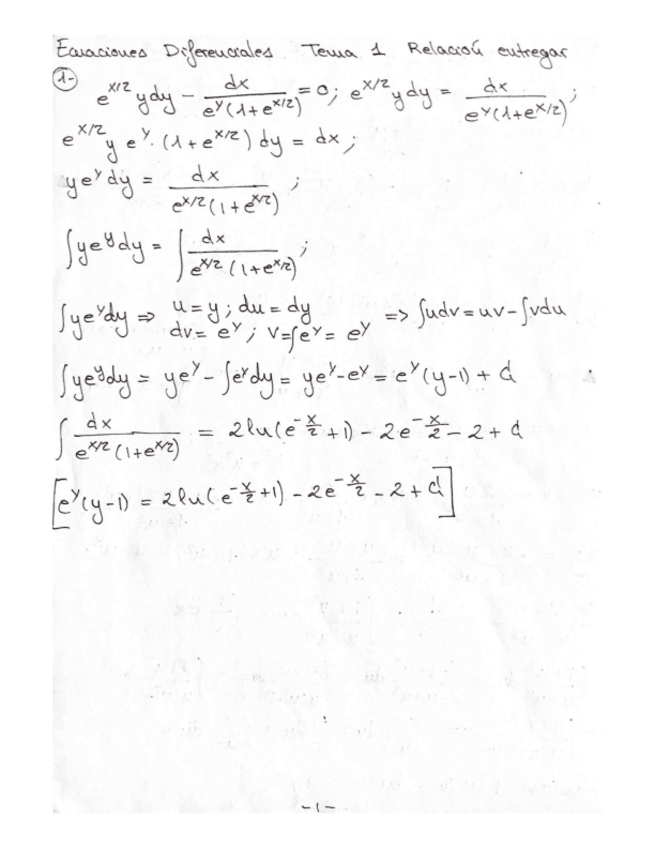 Ecuaciones Diferenciales Tema 1 Relación entregar
1.- e^{x/2} y dy - \frac{dx}{e^y (1+e^{x/2})} = 0; e^{x/2} y dy = \frac{dx}{e^y (1+e^{x/2})};
e^{x/2} y e^y · (1+e^{x/2}) dy = dx;
y e^y dy = \frac{dx}{e^{x/2} (1+e^{x/2})};
∫ y e^y dy = ∫ \frac{dx}{e^{x/2} (1+e^{x/2})};
∫ y e^y dy ⇒ u = y; du = dy
dv = e^y; v = ∫ e^y = e^y ⇒ ∫ u dv = uv - ∫ v du
∫ y e^y dy = y e^y - ∫ e^y dy = y e^y - e^y = e^y (y-1) + C
∫ \frac{dx}{e^{x/2} (1+e^{x/2})} = 2 ln(e^{-\frac{x}{2}} + 1) - 2e^{-\frac{x}{2}} - 2 + C
[e^y (y-1) = 2 ln(e^{-\frac{x}{2}} + 1) - 2e^{-\frac{x}{2}} - 2 + C]
-1-